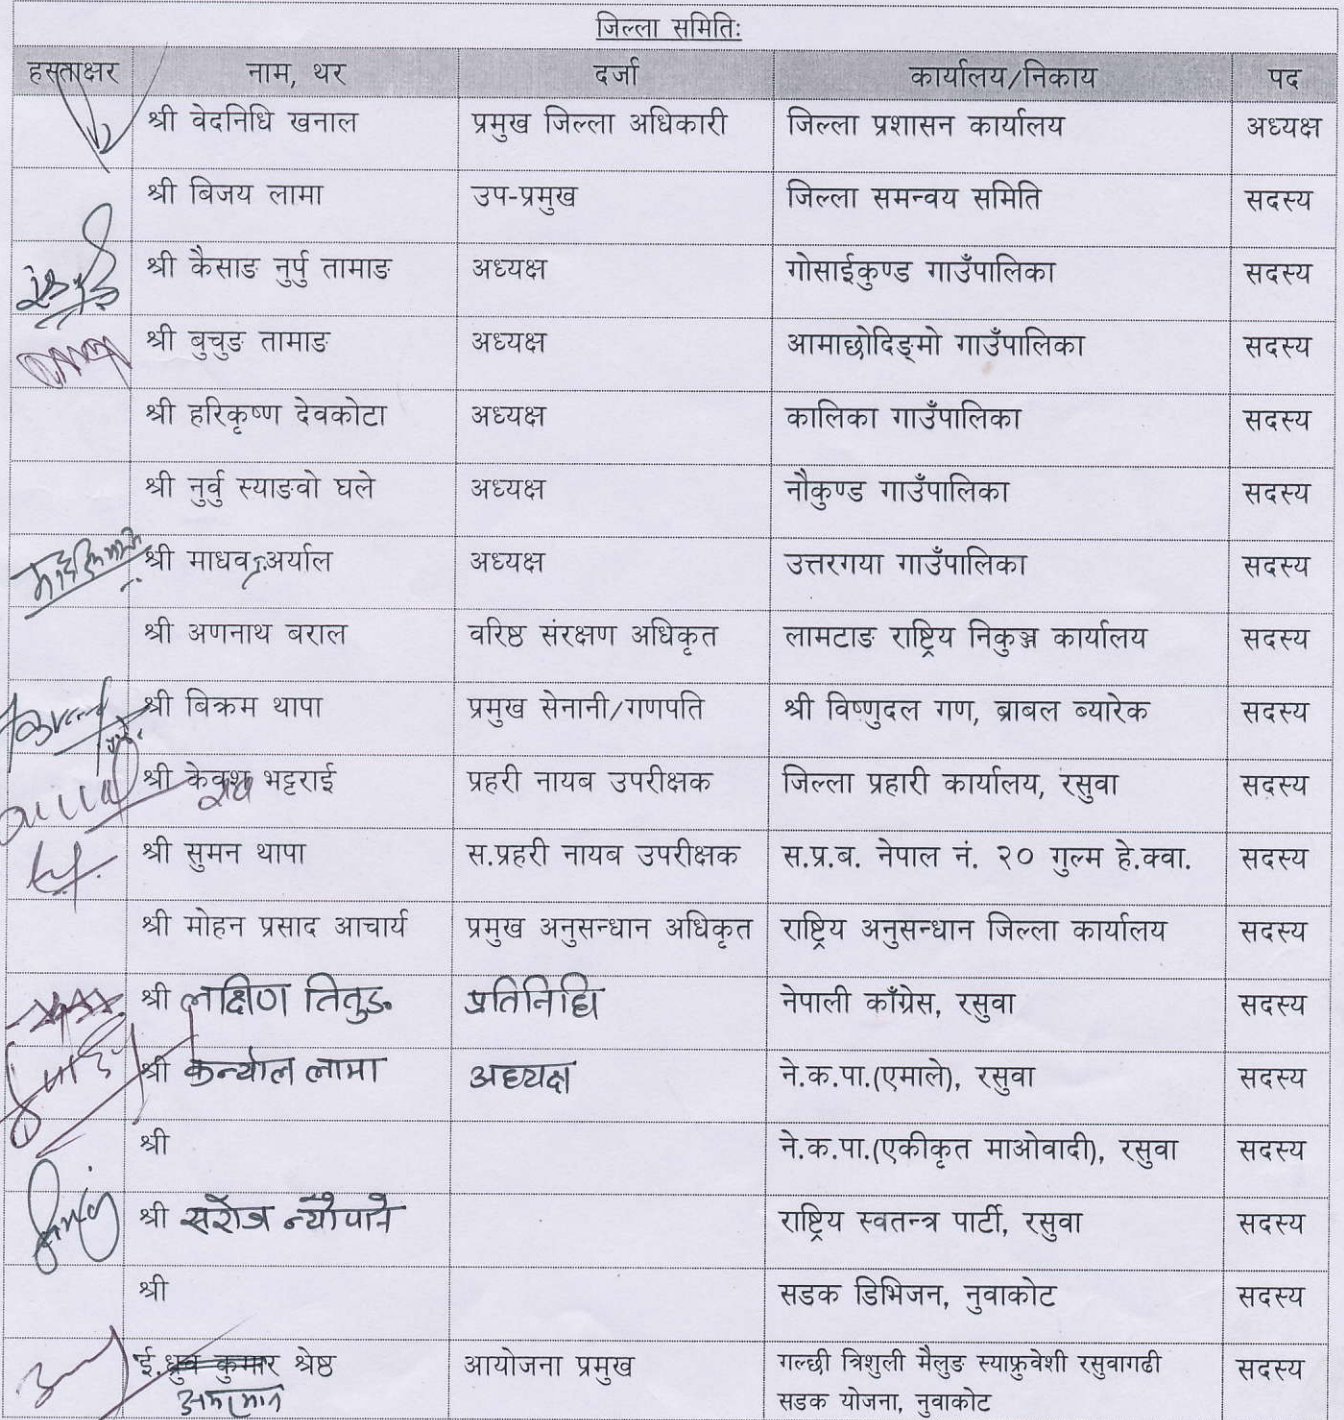 जिल्ला समितिः
हस्ताक्षर नाम, थर दर्जा कार्यालय/निकाय पद
श्री वेदनिधि खनाल प्रमुख जिल्ला अधिकारी जिल्ला प्रशासन कार्यालय अध्यक्ष
श्री बिजय लामा उप-प्रमुख जिल्ला समन्वय समिति सदस्य
श्री कैसाङ नुर्पु तामाङ अध्यक्ष गोसाईकुण्ड गाउँपालिका सदस्य
श्री बुचुङ तामाङ अध्यक्ष आमाछोदिङ्मो गाउँपालिका सदस्य
श्री हरिकृष्ण देवकोटा अध्यक्ष कालिका गाउँपालिका सदस्य
श्री नुर्वु स्याङवो घले अध्यक्ष नौकुण्ड गाउँपालिका सदस्य
श्री माधव अर्याल अध्यक्ष उत्तरगया गाउँपालिका सदस्य
श्री अणनाथ बराल वरिष्ठ संरक्षण अधिकृत लामटाङ राष्ट्रिय निकुञ्ज कार्यालय सदस्य
श्री बिक्रम थापा प्रमुख सेनानी/गणपति श्री विष्णुदल गण, ब्राबल ब्यारेक सदस्य
श्री भट्टराई प्रहरी नायब उपरीक्षक जिल्ला प्रहारी कार्यालय, रसुवा सदस्य
श्री सुमन थापा स.प्रहरी नायब उपरीक्षक स.प्र.ब. नेपाल नं. २० गुल्म हे.क्वा. सदस्य
श्री मोहन प्रसाद आचार्य प्रमुख अनुसन्धान अधिकृत राष्ट्रिय अनुसन्धान जिल्ला कार्यालय सदस्य
श्री प्रतिनिधि नेपाली काँग्रेस, रसुवा सदस्य
श्री लामा अध्यक्ष ने.क.पा.(एमाले), रसुवा सदस्य
श्री ने.क.पा.(एकीकृत माओवादी), रसुवा सदस्य
श्री सरोज न्यौपाने राष्ट्रिय स्वतन्त्र पार्टी, रसुवा सदस्य
श्री सडक डिभिजन, नुवाकोट सदस्य
ई. ध्रुव कुमार श्रेष्ठ आयोजना प्रमुख गल्छी त्रिशुली मैलुङ स्याफ्रुवेशी रसुवागढी सदस्य
सडक योजना, नुवाकोट